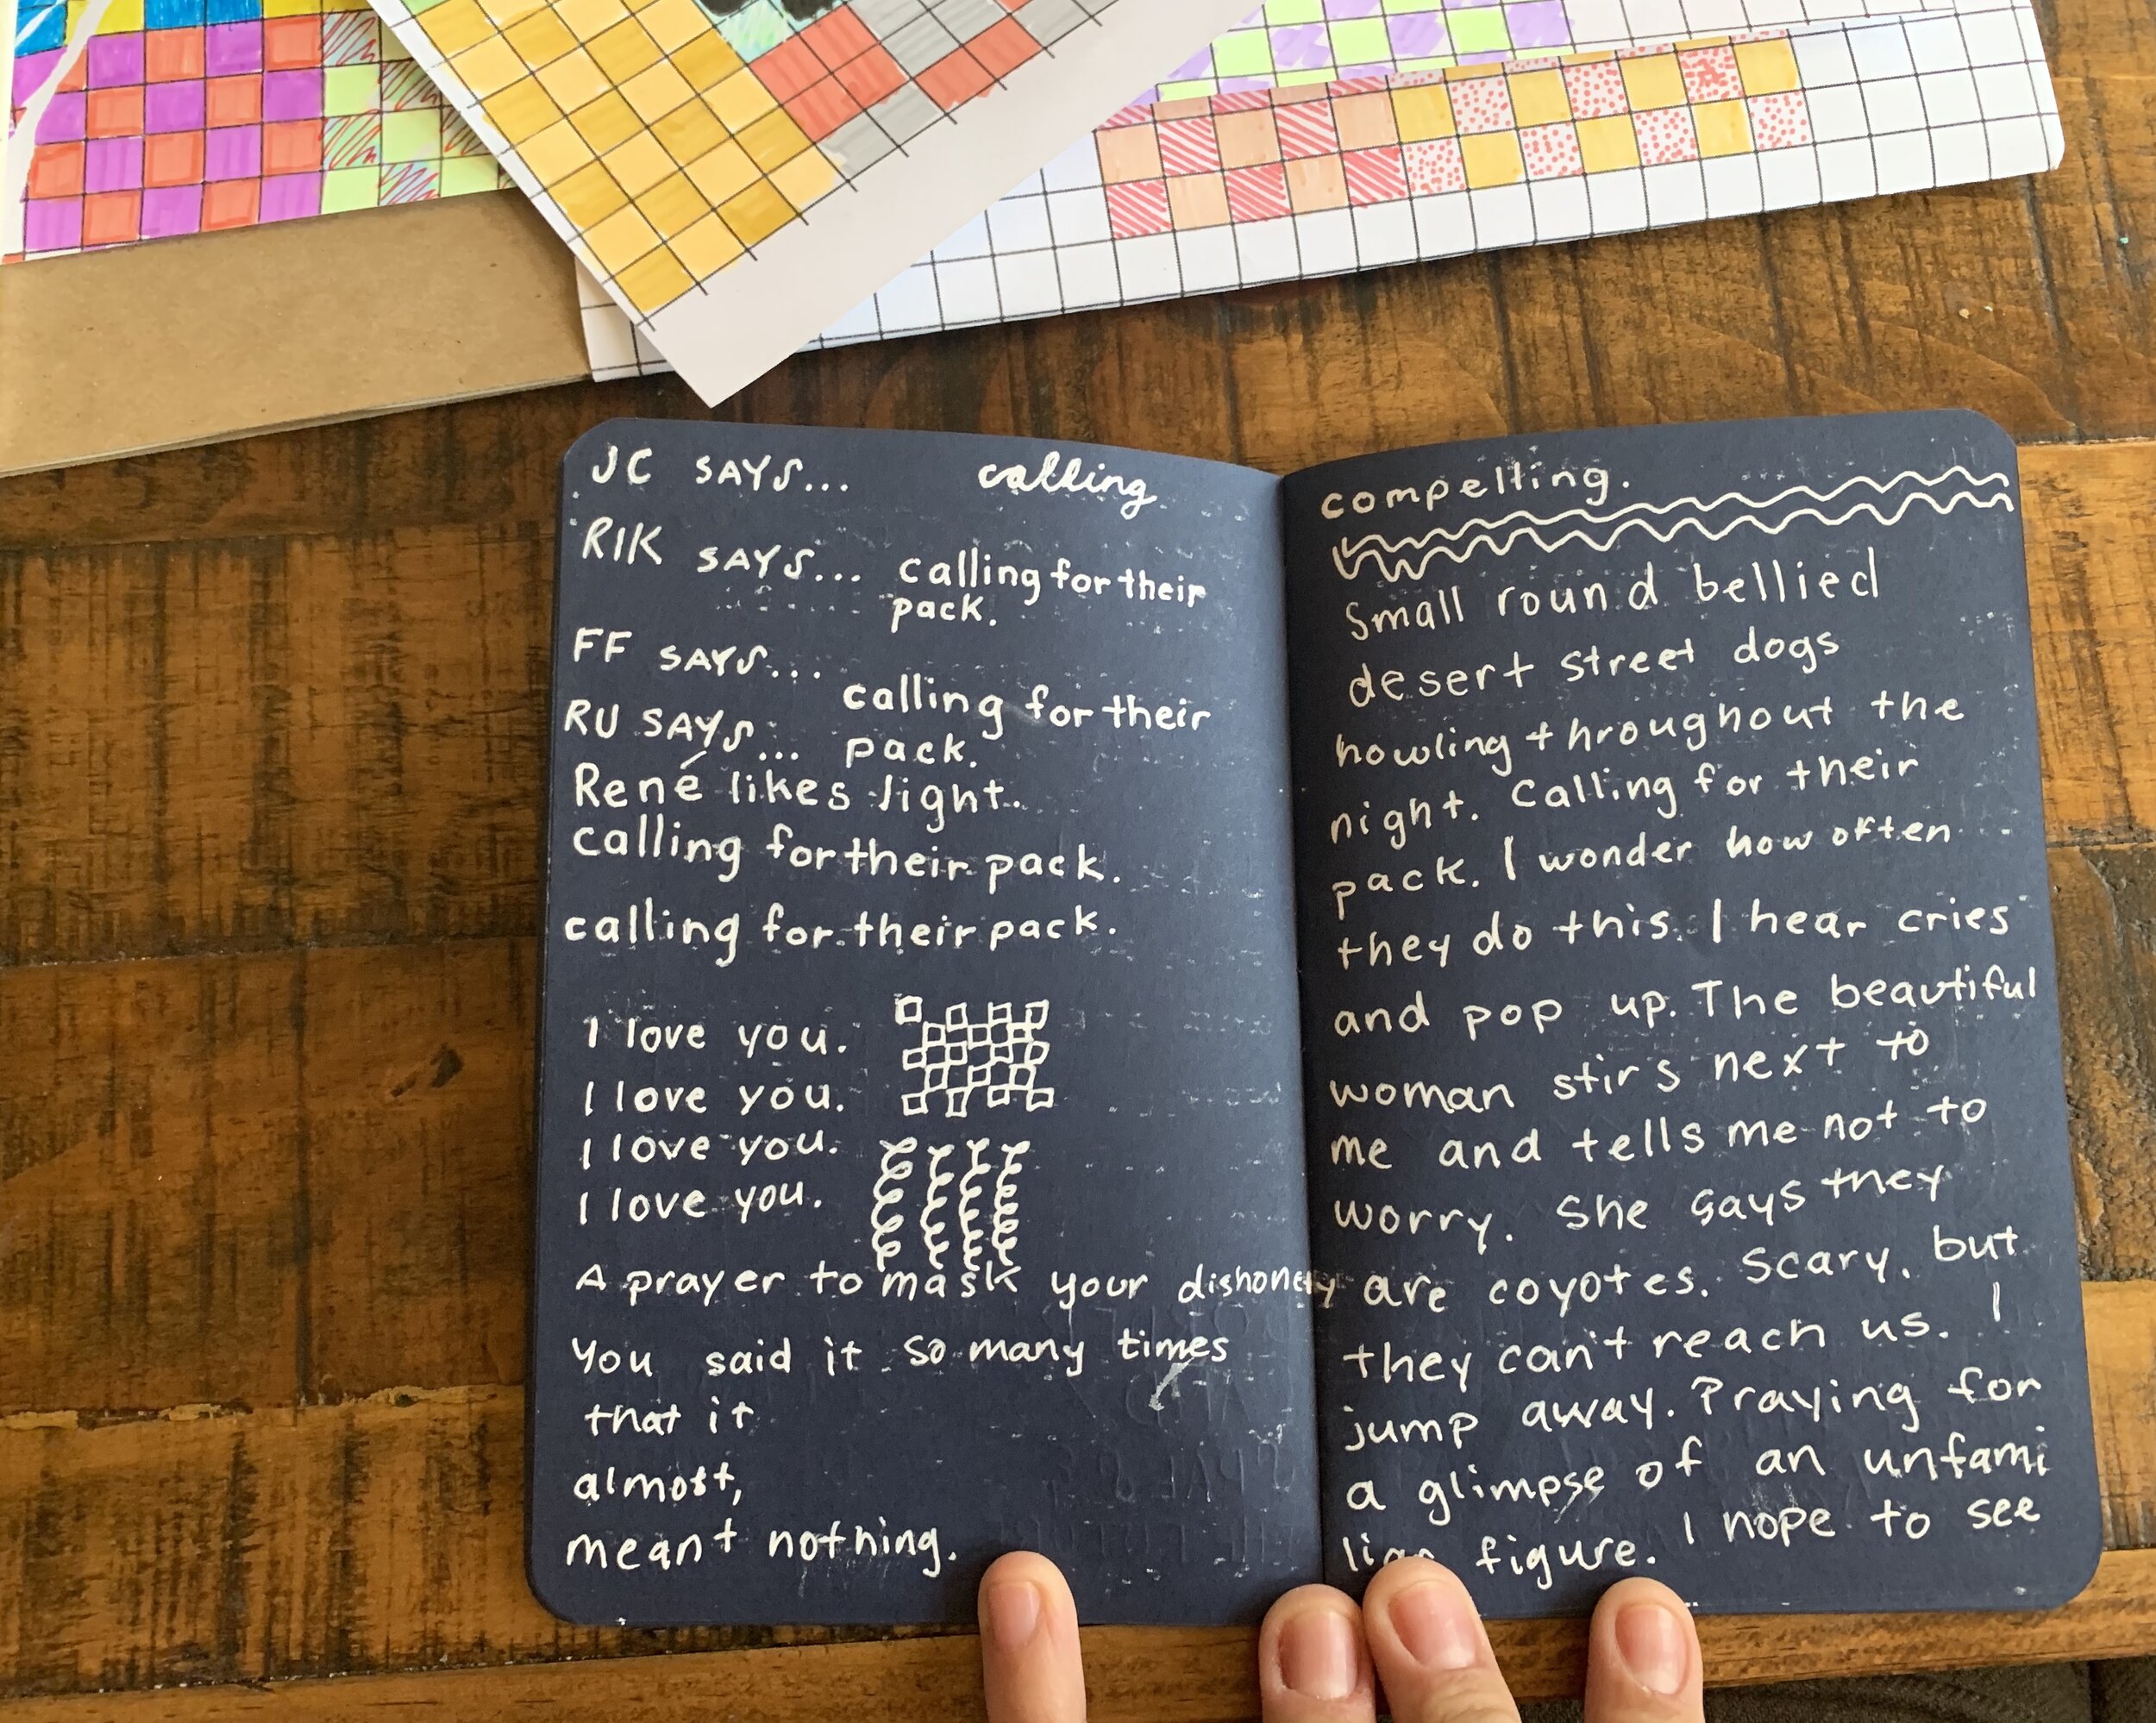 JC SAYS... calling
RIK SAYS... calling for their
pack.
FF SAYS...
calling for their
RU SAYS... pack.
René likes light.
calling for their pack.
calling for their pack.
I love you.
I love you.
I love you.
I love you.
A prayer to mask your dishonety
You said it so many times
that it
almost,
meant nothing.
compelling.
Small round bellied
desert street dogs
howling throughout the
night. Calling for their
pack. I wonder how often
they do this. I hear cries
and pop up. The beautiful
woman stirs next to
me and tells me not to
worry. She says they
are coyotes. Scary, but
they can't reach us. I
jump away. Praying for
a glimpse of an unfami
liar figure. I hope to see